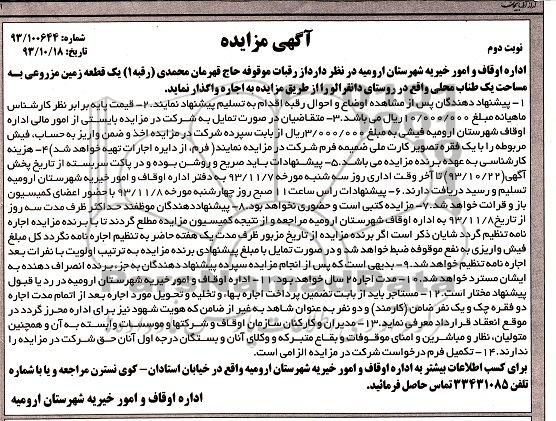 آگهی مزایده
شماره: ۹۳/۱۰۰۶۴۴
تاریخ: ۹۳/۱۰/۱۸
نوبت دوم
اداره اوقاف و امور خیریه شهرستان ارومیه در نظر دارد از رقبات موقوفه حاج قهرمان محمدی (رقبه۱) یک قطعه زمین مزروعی به
مساحت یک طناب محلی واقع در روستای دانقرالو را از طریق مزایده به اجاره واگذار نماید.
۱- پیشنهاد دهندگان پس از مشاهده اوضاع و احوال رقبه اقدام به تسلیم پیشنهاد نمایند. ۲- قیمت پایه برابر نظر کارشناس
ماهیانه مبلغ ریال می باشد. ۳- متقاضیان در صورت تمایل به شرکت در مزایده بایستی از امور مالی اداره
اوقاف شهرستان ارومیه فیش به مبلغ ۳/۰۰۰/۰۰۰ ریال از بابت سپرده شرکت در مزایده اخذ و ضمن واریز به حساب، فیش
مربوطه را با یک فقره تصویر کارت ملی ضمیمه فرم شرکت در مزایده نمایند( فرم از دایره اجارات تهیه خواهد شد) ۴- هزینه
کارشناسی به عهده برنده مزایده می باشد. ۵- پیشنهادات باید صریح و روشن بوده و در پاکت سربسته از تاریخ پخش
آگهی(۹۳/۱۰/۲۲) تا آخر وقت اداری روز سه شنبه مورخه ۹۳/۱۱/۷ به دفتر اداره اوقاف و امور خیریه شهرستان ارومیه
تسلیم و رسید دریافت دارند. ۶- پیشنهادات رأس ساعت ۱۱ صبح روز چهارشنبه مورخه ۹۳/۱۱/۸ با حضور اعضای کمیسیون
باز و قرائت خواهد شد. ۷- مزایده کتبی است و حضوری نخواهد بود. ۸- پیشنهاد دهندگان موظفند حداکثر ظرف مدت سه روز
از تاریخ ۹۳/۱۱/۸ به اداره اوقاف شهرستان ارومیه مراجعه و از نتیجه کمیسیون مزایده مطلع گردند تا با برنده مزایده اجاره
نامه تنظیم گردد شایان ذکر است اگر برنده مزایده از تاریخ مزبور ظرف مدت یک هفته حاضر به تنظیم اجاره نامه نگردد کل مبلغ
فیش واریزی به نفع موقوفه ضبط خواهد شد و در صورت تمایل با مبلغ پیشنهادی برنده مزایده به ترتیب اولویت با نفرات بعد
اجاره نامه تنظیم خواهد شد. ۹- بدیهی است که پس از انجام مزایده سپرده پیشنهاد دهندگان به جز برنده انصراف دهنده به
ایشان مسترد خواهد شد. ۱۰- مدت اجاره ۲ سال خواهد بود. ۱۱- اداره اوقاف و امور خیریه شهرستان ارومیه در رد یا قبول
پیشنهاد مختار است. ۱۲- مستأجر باید از بابت تضمین پرداخت اجاره بها، و تخلیه و تحویل مورد اجاره بعد از اتمام مدت اجاره
دو فقره چک و یک نفر ضامن (کارمند) و دو نفر به عنوان شاهد به غیر از ضامن که هویت شهود نیز برای اداره محرز گردد در
موقع انعقاد قرارداد معرفی نماید. ۱۳- مدیران و کارکنان سازمان اوقاف و شرکتها و موسسات وابسته به آن و همچنین
متولیان، نظار و مباشرین و امنای موقوفات و بقاع متبرکه و وکلای آنان و بستگان درجه اول آنان حق شرکت در مزایده را
ندارند. ۱۴- تکمیل فرم درخواست شرکت در مزایده الزامی است.
برای کسب اطلاعات بیشتر به اداره اوقاف و امور خیریه شهرستان ارومیه واقع در خیابان استادان - کوی نسترن مراجعه و یا با شماره
تلفن ۳۳۴۳۱۰۸۵ تماس حاصل فرمائید.
اداره اوقاف و امور خیریه شهرستان ارومیه